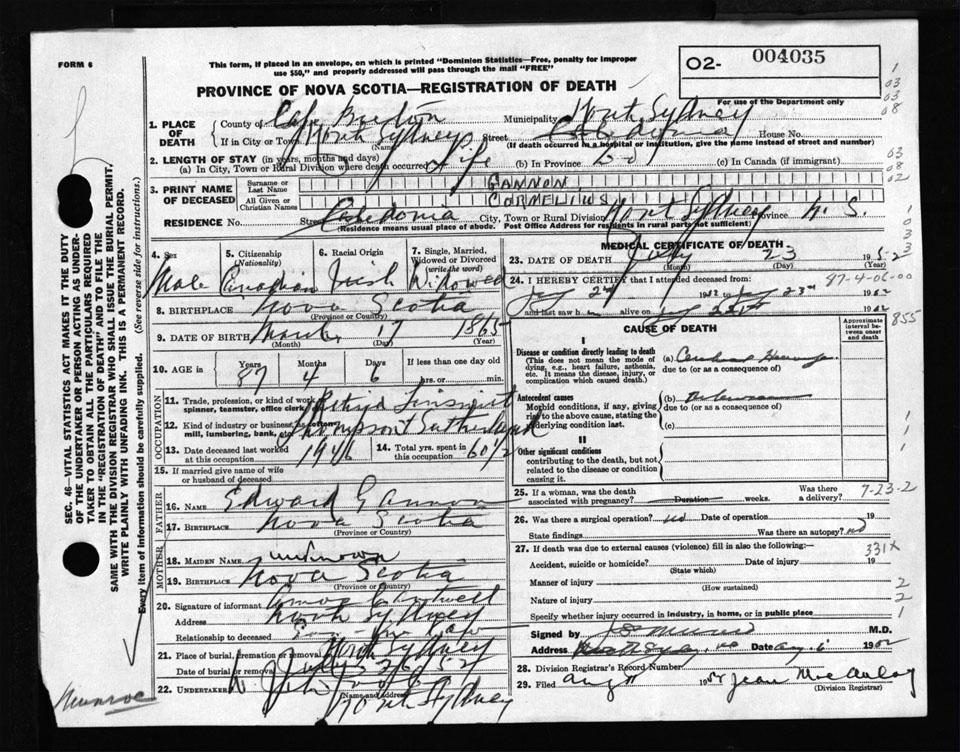 FORM 6
This form, if placed in an envelope, on which is printed "Dominion Statistics—Free, penalty for improper
use $50," and properly addressed will pass through the mail "FREE"
02- 004035
For use of the Department only
PROVINCE OF NOVA SCOTIA—REGISTRATION OF DEATH
1. PLACE OF DEATH
County of Cape Breton Municipality North Sydney
If in City or Town North Sydney Street House No.
(Name) (If death occurred in a hospital or institution, give the name instead of street and number)
2. LENGTH OF STAY (in years, months and days)
(a) In City, Town or Rural Division where death occurred Life (b) In Province (c) In Canada (if immigrant)
3. PRINT NAME OF DECEASED
Surname or Last Name GANNON
All Given or Christian Names CORNELIUS
RESIDENCE No. Street Caledonia City, Town or Rural Division North Sydney Province N. S.
(Residence means usual place of abode. Post Office Address for residents in rural parts not sufficient)
4. Sex 5. Citizenship (Nationality) 6. Racial Origin 7. Single, Married, Widowed or Divorced (write the word)
Male Canadian Irish Widowed
8. BIRTHPLACE Nova Scotia
(Province or Country)
9. DATE OF BIRTH March 17 1865
(Month) (Day) (Year)
10. AGE in Years Months Days If less than one day old
87 4 6 hrs. or min.
OCCUPATION
11. Trade, profession, or kind of work as spinner, teamster, office clerk Tinsmith
12. Kind of industry or business, as mill, lumbering, bank, Thompson & Sutherland
13. Date deceased last worked at this occupation 1946 14. Total yrs. spent in this occupation 60 1/2
15. If married give name of wife or husband of deceased
FATHER
16. NAME Edward Gannon
17. BIRTHPLACE Nova Scotia
MOTHER
18. MAIDEN NAME unknown
19. BIRTHPLACE Nova Scotia
(Province or Country)
20. Signature of informant
Address North Sydney
Relationship to deceased
21. Place of burial, cremation or removal North Sydney
Date of burial or removal July 26 52
22. UNDERTAKER
(Name and address)
North Sydney
MEDICAL CERTIFICATE OF DEATH
23. DATE OF DEATH July 23 1952
(Month) (Day) (Year)
24. I HEREBY CERTIFY that I attended deceased from: 87-4-06-00
July 2nd 1952 to July 23rd 1952
and last saw h alive on 1952
855
CAUSE OF DEATH
Approximate interval between onset and death
I
Disease or condition directly leading to death
(This does not mean the mode of dying, e.g., heart failure, asthenia, etc. It means the disease, injury, or complication which caused death.)
(a) Cerebral
due to (or as a consequence of)
Antecedent causes
Morbid conditions, if any, giving rise to the above cause, stating the underlying condition last.
(b)
due to (or as a consequence of)
(c)
II
Other significant conditions
contributing to the death, but not related to the disease or condition causing it.
25. If a woman, was the death associated with pregnancy? Duration weeks. Was there a delivery? 7-23-2
26. Was there a surgical operation? no Date of operation 19
State findings Was there an autopsy? no
27. If death was due to external causes (violence) fill in also the following:— 331x
Accident, suicide or homicide? Date of injury 19
(State which)
Manner of injury
(How sustained)
Nature of injury
Specify whether injury occurred in industry, in home, or in public place
Signed by M.D.
Address North Sydney Date Aug. 6 1952
28. Division Registrar's Record Number
29. Filed Aug 11 1952 Jean MacAulay
(Division Registrar)
SEC. 46—VITAL STATISTICS ACT MAKES IT THE DUTY
OF THE UNDERTAKER OR PERSON ACTING AS UNDER-
TAKER TO OBTAIN ALL THE PARTICULARS REQUIRED
IN THE "REGISTRATION OF DEATH" AND TO FILE THE
SAME WITH THE DIVISION REGISTRAR WHO SHALL ISSUE THE BURIAL PERMIT.
WRITE PLAINLY WITH UNFADING INK. THIS IS A PERMANENT RECORD.
Every item of information should be carefully supplied. (See reverse side for instructions.)
Munroe